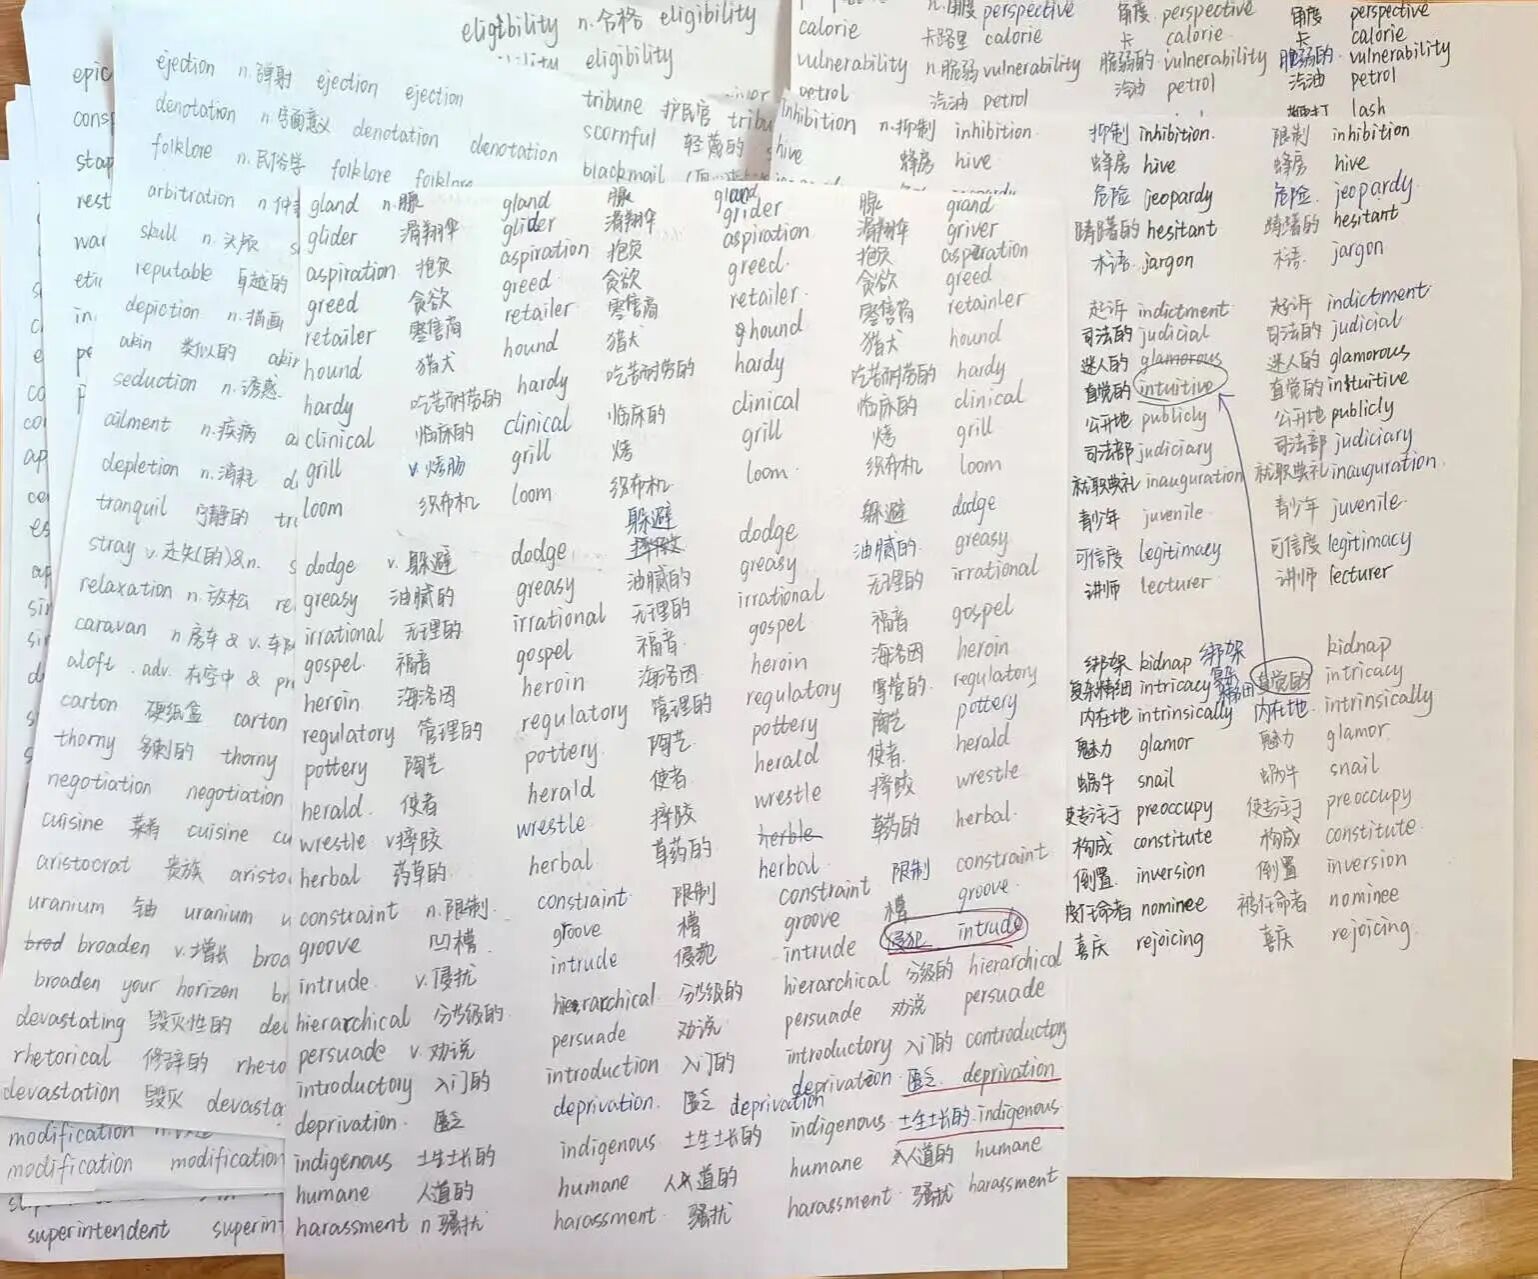 eligibility n.合格 eligibility
eligibility
ejection n.弹射 ejection ejection
denotation n.字面意义 denotation denotation
folklore n.民俗学 folklore folklore
arbitration n.仲
skull n.头颅
reputable 卓越的
depiction n.描画
akin 类似的 akin
seduction n.诱惑
ailment n.疾病
depletion n.消耗
tranquil 宁静的
stray v.走失(的)&n.
relaxation n.放松 re
caravan n 房车 & v.车
aloft .adv. 在空中 &
carton 硬纸盒 carton
thorny 多刺的 thorny
negotiation negotiation
cuisine 菜肴 cuisine cu
aristocrat 贵族 aristo
uranium 铀 uranium u
brod broaden v.增长 broa
broaden your horizon br
devastating 毁灭性的 de
rhetorical 修辞的 rheto
devastation 毁灭 devasta
modification n.
modification modification
superintendent superin
tribune 护民官 tribu
scornful 轻蔑的
blackmail
perspective 角度 perspective 角度 perspective
calorie 卡路里 calorie 卡 calorie 卡 calorie
vulnerability n.脆弱 vulnerability 脆弱的 vulnerability 脆弱的 vulnerability
petrol 汽油 petrol 汽油 petrol 汽油 petrol
lash
inhibition n.抑制 inhibition 抑制 inhibition. 限制 inhibition
hive 蜂房 hive 蜂房 hive 蜂房 hive
危险 jeopardy 危险. jeopardy.
踌躇的 hesitant 踌躇的 hesitant
术语. jargon 术语. jargon
起诉 indictment 起诉 indictment
司法的 judicial 司法的 judicial
迷人的 glamorous 迷人的 glamorous
直觉的 intuitive 直觉的 intuitive
公开地 publicly 公开地 publicly
司法部 judiciary 司法部 judiciary
就职典礼 inauguration 就职典礼 inauguration.
青少年 juvenile 青少年 juvenile
可信度 legitimacy 可信度 legitimacy
讲师 lecturer 讲师 lecturer
绑架 kidnap 绑架 kidnap
复杂精细 intricacy 复杂精细 直觉的 intricacy
内在地 intrinsically 内在地. intrinsically
魅力 glamor 魅力 glamor
蜗牛 snail 蜗牛 snail
使专注于 preoccupy 使专注于 preoccupy
构成 constitute 构成 constitute
倒置. inversion 倒置 inversion
被任命者 nominee 被任命者 nominee
喜庆 rejoicing 喜庆 rejoicing.
gland n.腺 gland 腺 gland 腺 grand
glider 滑翔伞 glider 滑翔伞 grider 滑翔伞 griver
aspiration 抱负 aspiration 抱负 aspiration 抱负 asperation
greed 贪欲 greed 贪欲 greed. 贪欲 greed
retailer 零售商 retailer 零售商 retailer. 零售商 retainler
hound 猎犬 hound 猎犬 hound 猎犬 hound
hardy 吃苦耐劳的 hardy 吃苦耐劳的 hardy 吃苦耐劳的 hardy
clinical 临床的 clinical 临床的 clinical 临床的 clinical
grill v.烤肠 grill 烤 grill 烤 grill
loom 织布机 loom 织布机. loom 织布机 loom
dodge v.躲避 dodge 躲避 dodge 躲避 dodge
greasy 油腻的 greasy 油腻的 greasy 油腻的 greasy
irrational 无理的 irrational 无理的 irrational 无理的 irrational
gospel 福音 gospel 福音. gospel 福音 gospel
heroin 海洛因 heroin 海洛因 heroin 海洛因 heroin
regulatory 管理的 regulatory 管理的 regulatory 管理的 regulatory
pottery 陶艺 pottery. 陶艺 pottery 陶艺 pottery
herald. 使者 herald 使者. herald 使者. herald
wrestle v.摔跤 wrestle 摔跤 wrestle 摔跤 wrestle
herbal 药草的 herbal 草药的 herble herbal 草药的 herbal.
constraint n.限制. constraint 限制 constraint 限制 constraint
groove 凹槽 groove 槽 groove 槽 groove
intrude v.侵扰 intrude 侵犯 intrude 侵犯 intrude
hierarchical 分等级的 hierarchical 分等级的 hierarchical 分级的 hierarchical
persuade v.劝说 persuade 劝说 persuade 劝说 persuade
introductory 入门的 introduction 入门的 introductory 入门的 controductory
deprivation. 匮乏 deprivation. 匮乏 deprivation deprivation. 匮乏. deprivation
indigenous 土生土长的 indigenous 土生土长的 indigenous 土生土长的. indigenous
humane 人道的 humane 人道的 humane 人道的 humane
harassment n 骚扰 harassment 骚扰 harassment 骚扰 harassment